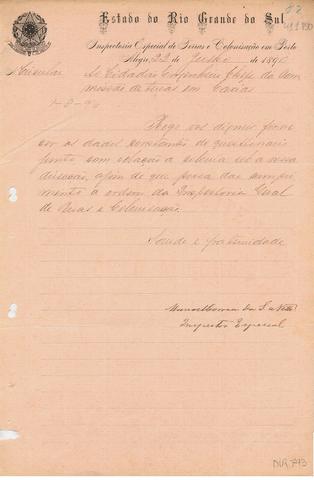 Estado do Rio Grande do Sul
Inspectoria Especial de Terras e Colonisação em Porto
Alegre, 22 de Julho de 1890
Circular Ao Cidadão Engenheiro Chefe da Com
missão de terras em Caxias
1-8-90
Rogo vos digneis forne
cer os dados constantes do questionario
junto com relação a colonia sob a vossa
direcção, afim de que possa dar cumpri
mento à ordem da Inspectoria Geral
de Terras e Colonisação.
Saude e fraternidade
Inspector Especial
DIR 773